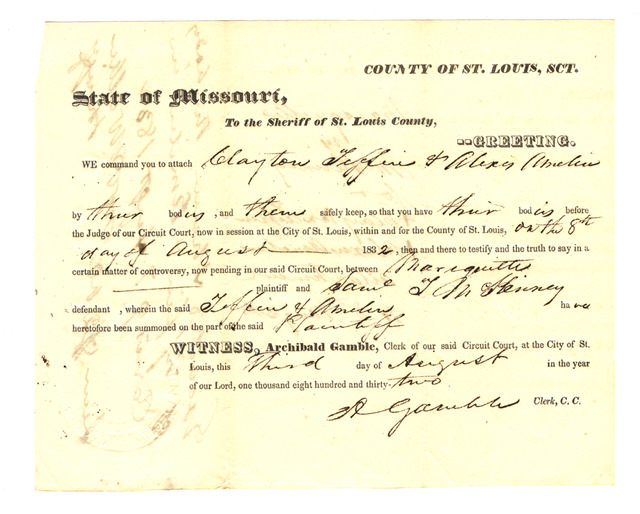 COUNTY OF ST. LOUIS, SCT.
State of Missouri,
To the Sheriff of St. Louis County,
--GREETING.
WE command you to attach Clayton Tiffin & Alexis Amelin
by their bodies, and them safely keep, so that you have their bodies before
the Judge of our Circuit Court, now in session at the City of St. Louis, within and for the County of St. Louis, on the 8th
day of August 1832, then and there to testify and the truth to say in a
certain matter of controversy, now pending in our said Circuit Court, between
plaintiff and Saml T McKenney
defendant , wherein the said Tiffin & Amelin have
heretofore been summoned on the part of the said Plaintiff
WITNESS, Archibald Gamble, Clerk of our said Circuit Court, at the City of St.
Louis, this third day of August in the year
of our Lord, one thousand eight hundred and thirty-two
A Gamble Clerk, C. C.